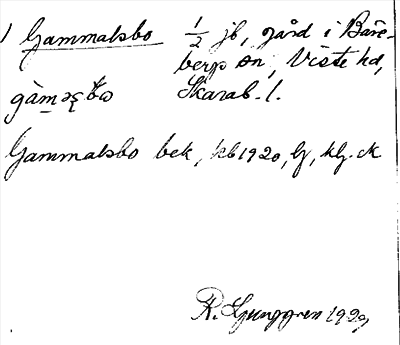 1 Gammalsbo 1/2 jb, gård i Bäre-
bergs sn, Viste hd,
Skarab. l.
Gammalsbo bek, kb 1920, lj, klj. ck
R. Ljunggren 1929